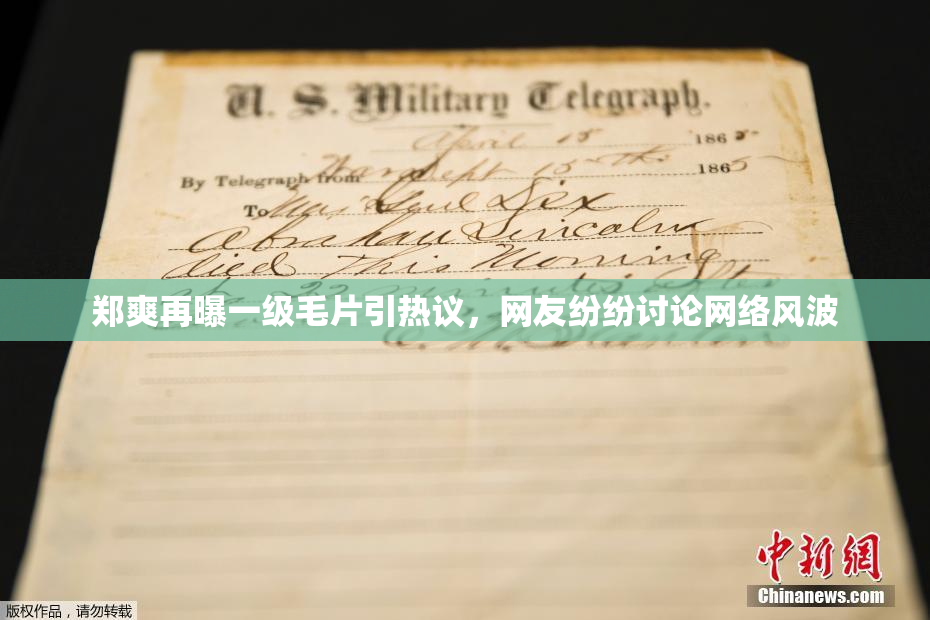 U. S. Military Telegraph.
April 15 1865
By Telegraph from War Dept 15th 1865
To Maj Genl Dix
Abraham Lincoln
died This Morning
22 minutes after
郑爽再曝一级毛片引热议，网友纷纷讨论网络风波
E. M. Stanton
中新网
Chinanews.com
版权作品，请勿转载